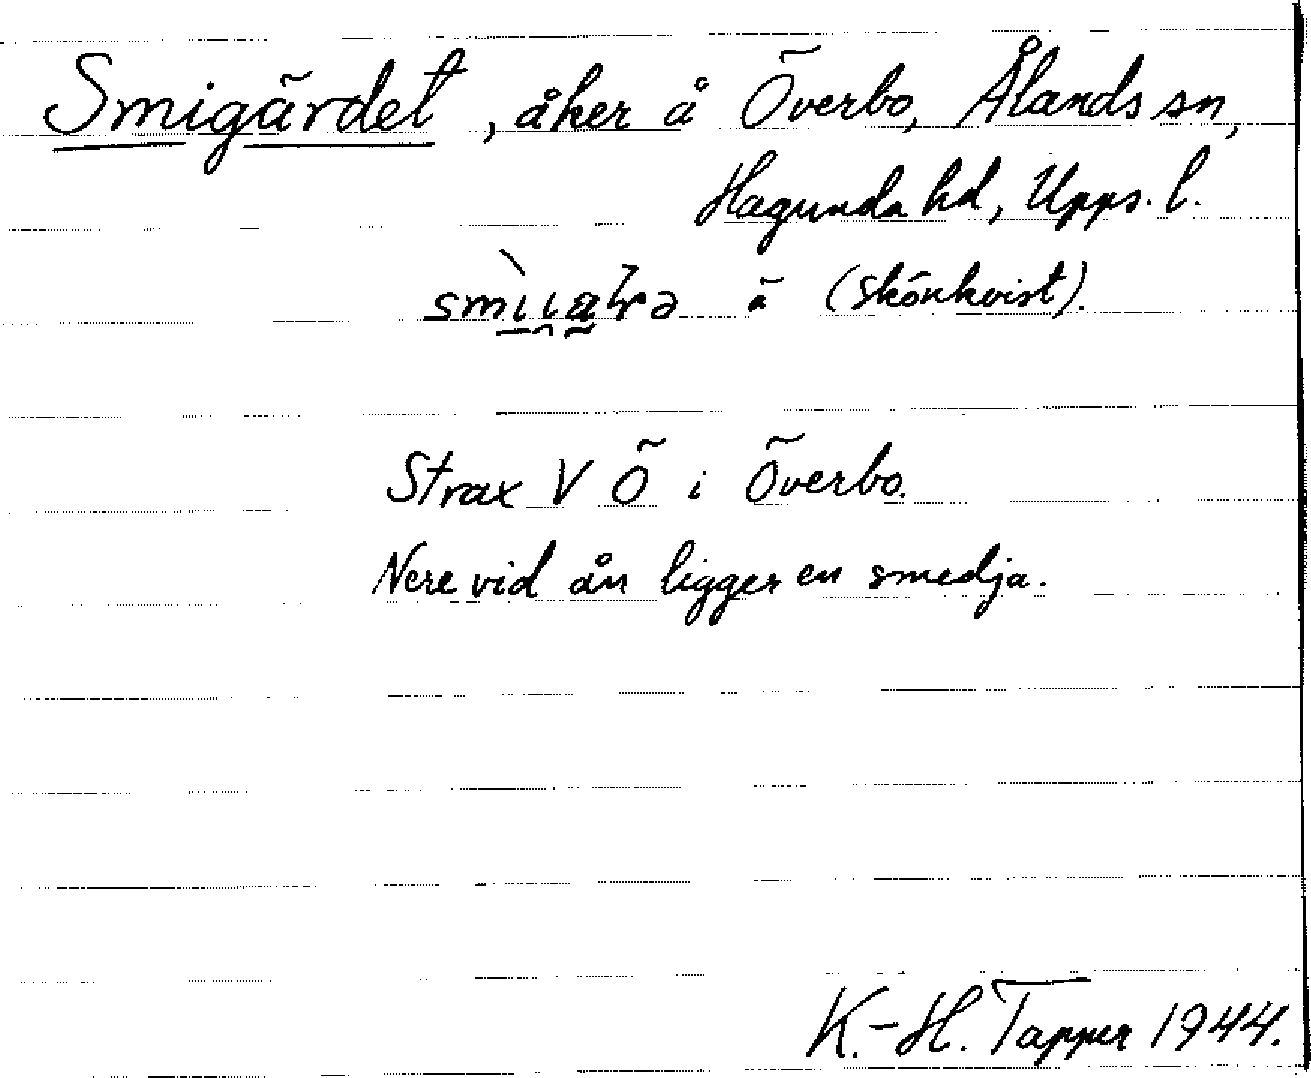 Smigärdet, åker å Överbo, Ålands sn,
Hagunda hd, Upps. l.
ä (Skönkvist).
Strax V Ö i Överbo.
Nere vid ån ligger en smedja.
K.-H. Tapper 1944.